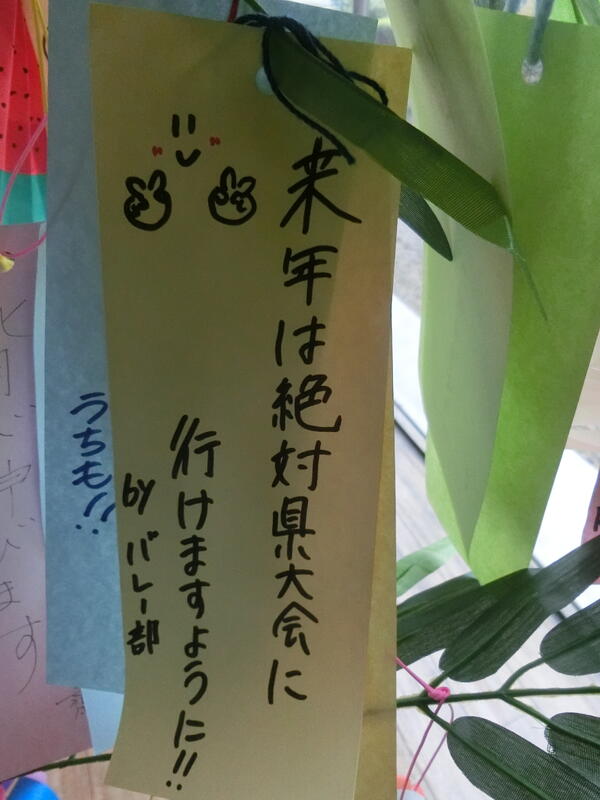 来年は絶対県大会に
行けますように!!
by バレー部
うちも!!